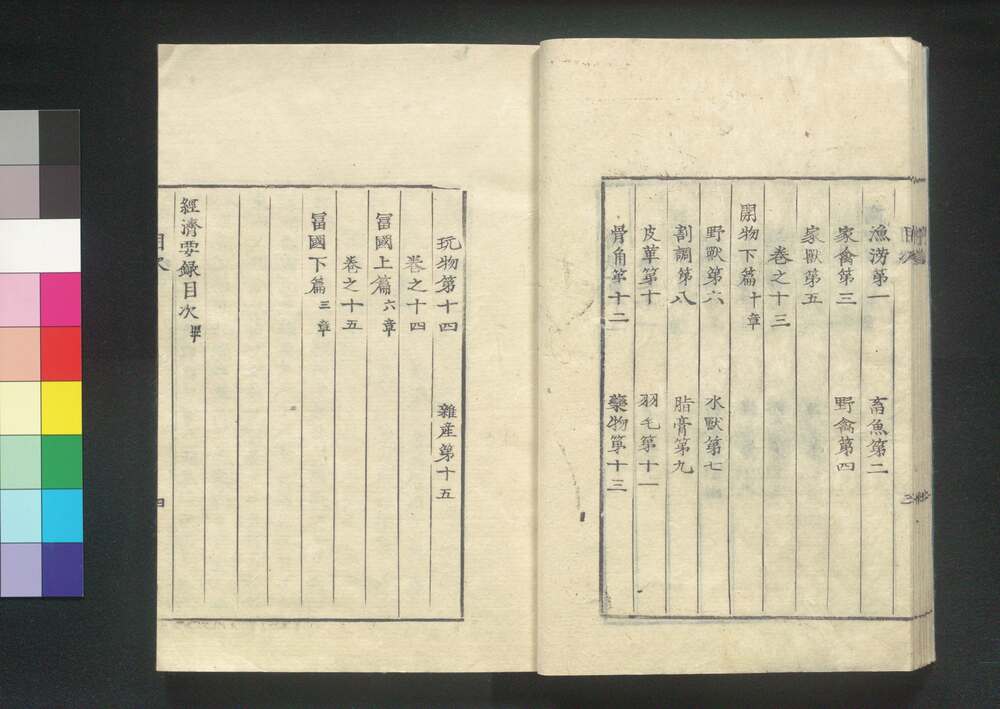 漁澇第一　畜魚第二
家禽第三　野禽第四
家獸第五
巻之十三
開物下篇十章
野獸第六　水獸第七
割調第八　脂膏第九
皮革第十　羽毛第十一
骨角第十二　藥物第十三
玩物第十四　雜産第十五
巻之十四
冨國上篇六章
巻之十五
冨國下篇三章
經濟要録目次畢
目次
四